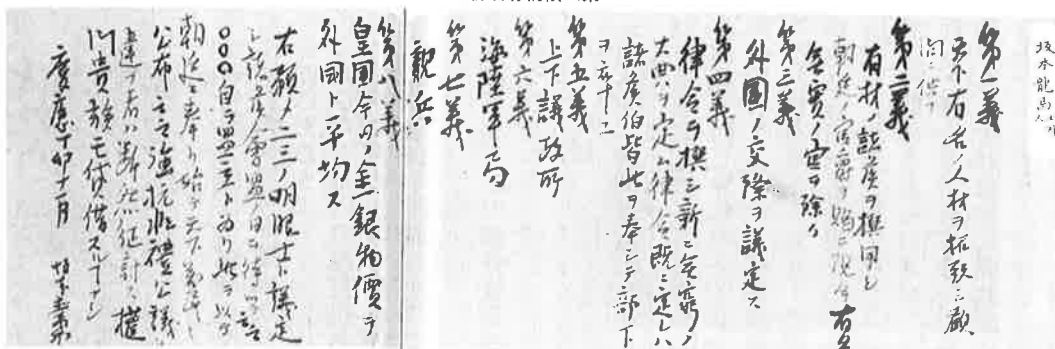 第一義
天下有名ノ人材ヲ招致シ顧
問ニ供フ
第二義
有材ノ諸侯ヲ撰用シ
朝廷ノ官爵ヲ賜ヒ現今有名
無実ノ官ヲ除ク
第三義
外國ノ交際ヲ議定ス
第四義
律令ヲ撰シ新ニ無窮ノ
大典ヲ定ム律令既ニ定レハ
諸侯伯皆此ヲ奉シテ部下
ヲ率ユ
第五義
上下議政所
第六義
海陸軍局
第七義
親兵
第八義
皇國今日ノ金銀物價ヲ
外國ト平均ス
右預メ二三ノ明眼士ト議定
シ諸侯會盟ノ日ヲ待ツテ云云
○○○自ラ盟主ト為リ此ヲ以テ
朝廷ニ奉リ始テ天下萬民ニ
公布云云強抗非禮公議ニ
違フ者ハ断然征討ス權
門貴族モ貸借スルコトナシ
慶應丁卯十一月 坂本直柔